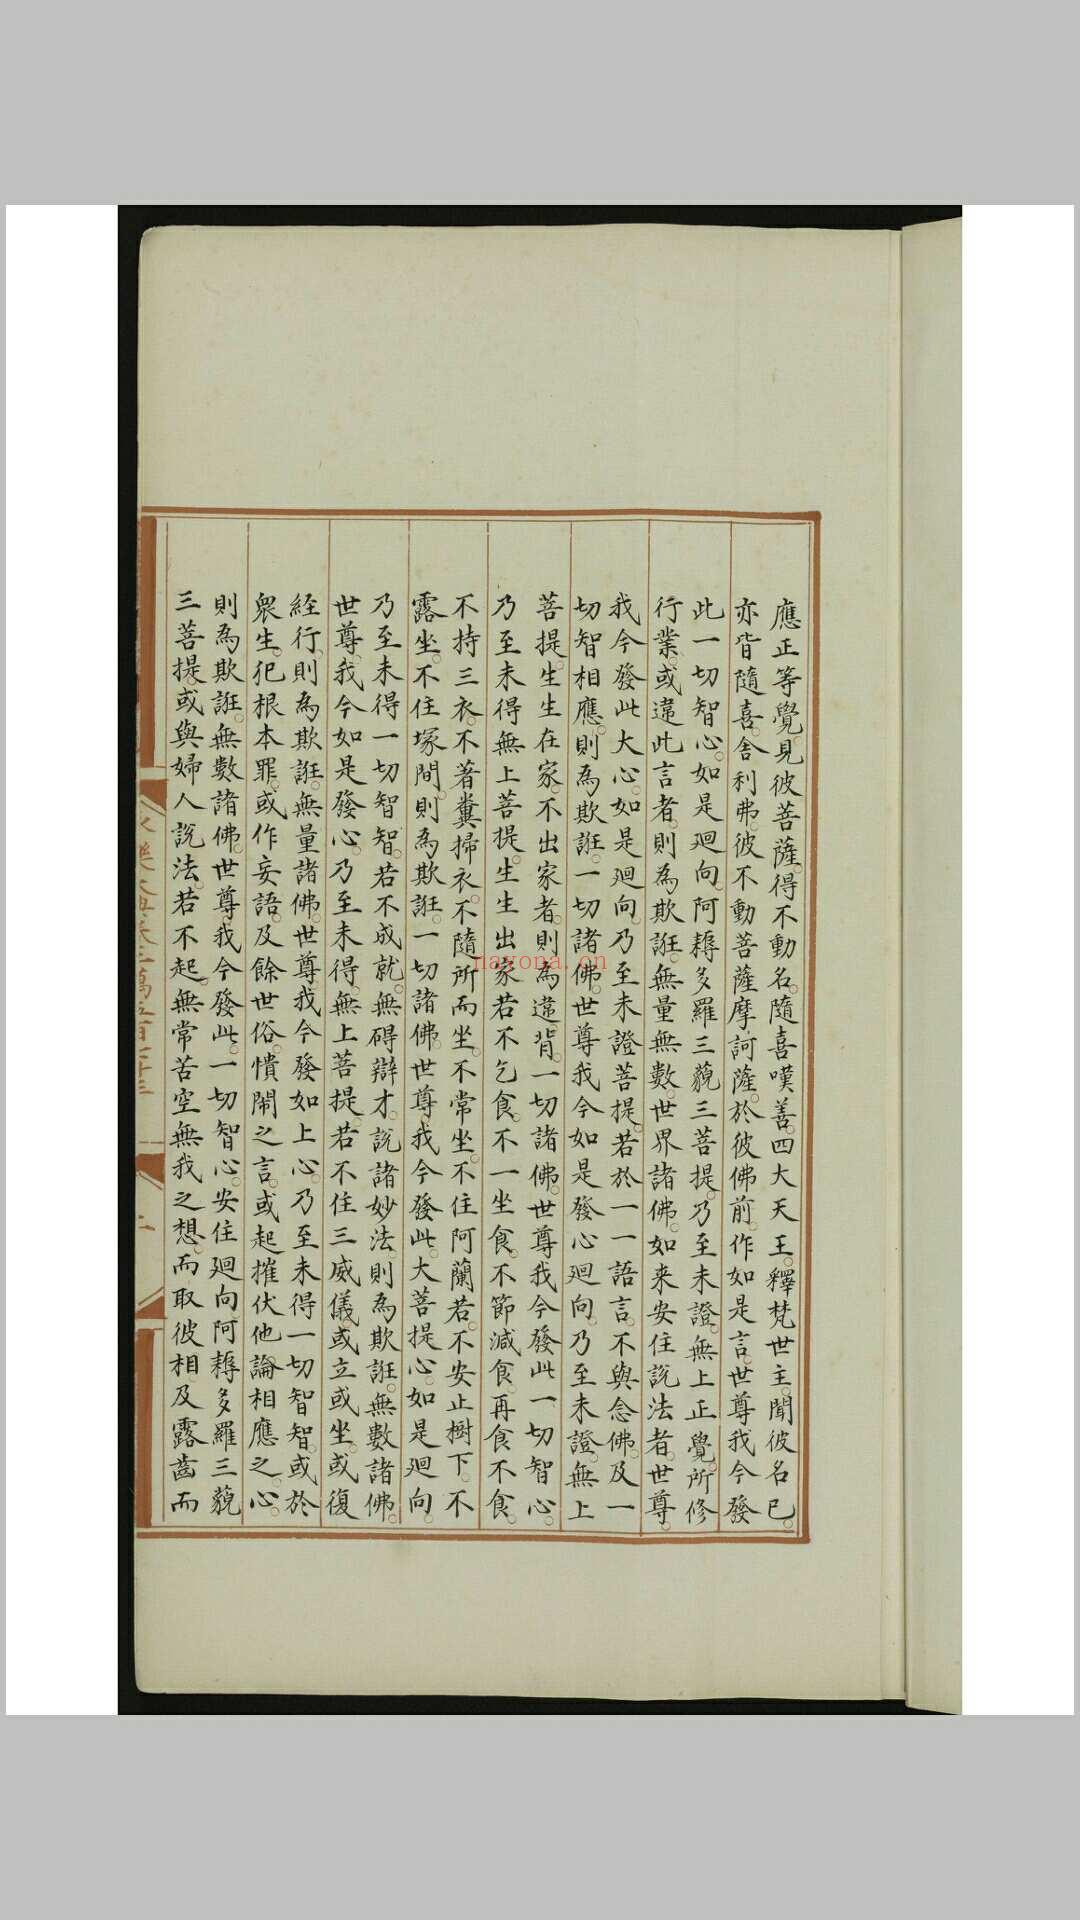 應正等覺。見彼菩薩。得不動名。隨喜嘆善。四大天王。釋梵世主。聞彼名已。
亦皆隨喜。舍利弗。彼不動菩薩摩訶薩。於彼佛前。作如是言。世尊我今發
此一切智心。如是廻向。阿耨多羅三藐三菩提。乃至未證。無上正覺。所修
行業。或違此言者。則為欺誑。無量無數。世界諸佛。如来安住說法者。世尊。
我今發此大心。如是廻向。乃至未證菩提。若於一一語言。不與念佛。及一
切智相應。則為欺誑。一切諸佛。世尊我今如是發心廻向。乃至未證。無上
菩提。生生在家。不出家者。則為違背。一切諸佛。世尊我今發此一切智心。
乃至未得無上菩提。生生出家若不乞食。不一坐食。不節減食。再食不食。
不持三衣。不著糞掃衣。不隨所而坐。不常坐。不住阿蘭若。不安止樹下。不
露坐。不住塚間。則為欺誑。一切諸佛。世尊我今發此。大菩提心。如是廻向。
乃至未得一切智智。若不成就。無碍辯才。說諸妙法。則為欺誑。無數諸佛。
世尊。我今如是發心。乃至未得。無上菩提。若不住三威儀。或立或坐。或復
經行。則為欺誑。無量諸佛。世尊。我今發如上心。乃至未得一切智智。或於
衆生。犯根本罪。或作妄語。及餘世俗。憒鬧之言。或起摧伏他論相應之心。
則為欺誑。無數諸佛。世尊我今發此。一切智心。安住廻向阿耨多羅三藐
三菩提。或與婦人說法。若不起。無常苦空無我之想。而取彼相。及露齒而
永樂大典卷三萬五百二十三
nayona.cn